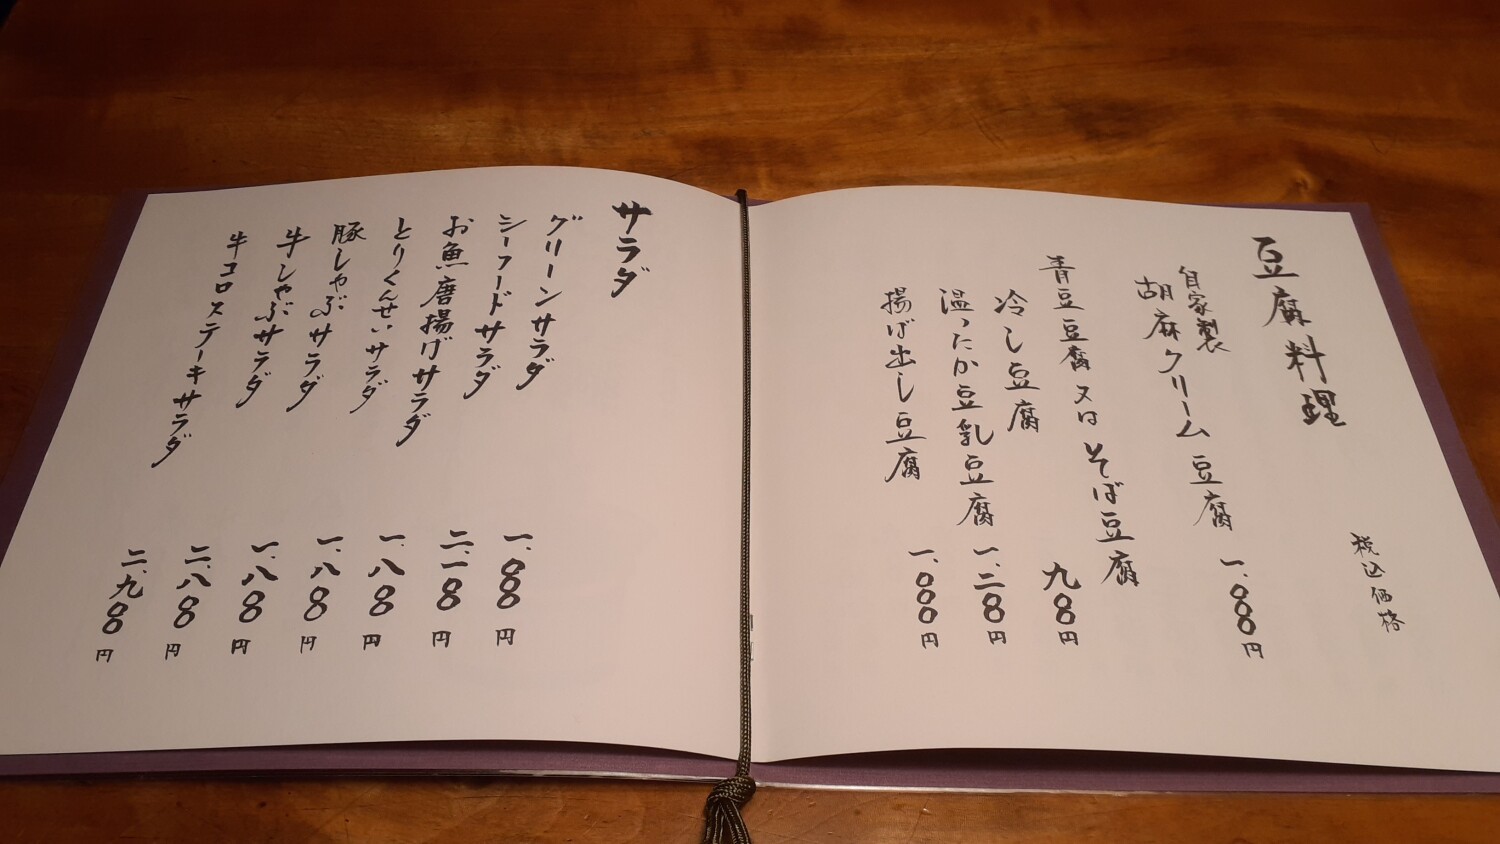 豆腐料理
税込価格
自家製
胡麻クリーム豆腐 一、〇〇〇円
青豆豆腐又はそば豆腐
冷し豆腐 九〇〇円
温ったか豆乳豆腐 一、二〇〇円
揚げ出し豆腐 一、〇〇〇円
サラダ
グリーンサラダ 一、〇〇〇円
シーフードサラダ 二、一〇〇円
お魚唐揚げサラダ 一、八〇〇円
とりくんせいサラダ 一、八〇〇円
豚しゃぶサラダ 一、八〇〇円
牛しゃぶサラダ 二、八〇〇円
牛コロステーキサラダ 二、九〇〇円